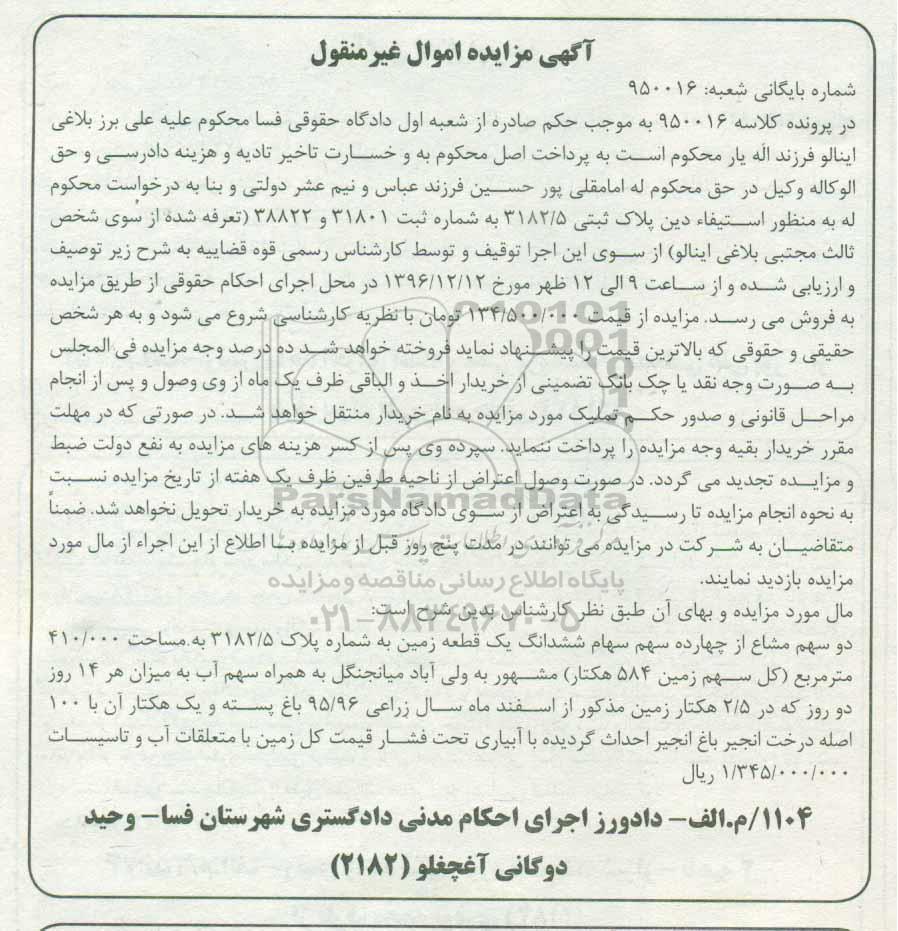 آگهی مزایده اموال غیرمنقول
شماره بایگانی شعبه: ۹۵۰۰۱۶
در پرونده کلاسه ۹۵۰۰۱۶ به موجب حکم صادره از شعبه اول دادگاه حقوقی فسا محکوم علیه علی برز بلاغی
اینالو فرزند اله یار محکوم است به پرداخت اصل محکوم به و خسارت تاخیر تادیه و هزینه دادرسی و حق
الوکاله وکیل در حق محکوم له امامقلی پور حسین فرزند عباس و نیم عشر دولتی و بنا به درخواست محکوم
له به منظور استیفاء دین پلاک ثبتی ۳۱۸۲/۵ به شماره ثبت ۳۱۸۰۱ و ۳۸۸۲۲ (تعرفه شده از سوی شخص
ثالث مجتبی بلاغی اینالو) از سوی این اجرا توقیف و توسط کارشناس رسمی قوه قضاییه به شرح زیر توصیف
و ارزیابی شده و از ساعت ۹ الی ۱۲ ظهر مورخ ۱۳۹۶/۱۲/۱۲ در محل اجرای احکام حقوقی از طریق مزایده
به فروش می رسد. مزایده از قیمت ۱۳۴/۵۰۰/۰۰۰ تومان با نظریه کارشناسی شروع می شود و به هر شخص
حقیقی و حقوقی که بالاترین قیمت را پیشنهاد نماید فروخته خواهد شد ده درصد وجه مزایده فی المجلس
به صورت وجه نقد یا چک بانک تضمینی از خریدار اخذ و الباقی ظرف یک ماه از وی وصول و پس از انجام
مراحل قانونی و صدور حکم تملیک مورد مزایده به نام خریدار منتقل خواهد شد. در صورتی که در مهلت
مقرر خریدار بقیه وجه مزایده را پرداخت ننماید. سپرده وی پس از کسر هزینه های مزایده به نفع دولت ضبط
و مزایده تجدید می گردد. در صورت وصول اعتراض از ناحیه طرفین ظرف یک هفته از تاریخ مزایده نسبت
به نحوه انجام مزایده تا رسیدگی به اعتراض از سوی دادگاه مورد مزایده به خریدار تحویل نخواهد شد. ضمناً
متقاضیان به شرکت در مزایده می توانند در مدت پنج روز قبل از مزایده با اطلاع از این اجراء از مال مورد
مزایده بازدید نمایند.
مال مورد مزایده و بهای آن طبق نظر کارشناس بدین شرح است:
دو سهم مشاع از چهارده سهم سهام ششدانگ یک قطعه زمین به شماره پلاک ۳۱۸۲/۵ به مساحت ۴۱۰/۰۰۰
مترمربع (کل سهم زمین ۵۸۴ هکتار) مشهور به ولی آباد میانجنگل به همراه سهم آب به میزان هر ۱۴ روز
دو روز که در ۲/۵ هکتار زمین مذکور از اسفند ماه سال زراعی ۹۵/۹۶ باغ پسته و یک هکتار آن با ۱۰۰
اصله درخت انجیر باغ انجیر احداث گردیده با آبیاری تحت فشار قیمت کل زمین با متعلقات آب و تاسیسات
۱/۳۴۵/۰۰۰/۰۰۰ ریال
۱۱۰۴/م.الف- دادورز اجرای احکام مدنی دادگستری شهرستان فسا- وحید
دوگانی آغچغلو (۲۱۸۲)
ParsNamadData
پایگاه اطلاع رسانی مناقصه و مزایده
۰۲۱-۸۸۳۴۹۶۷۰-۵